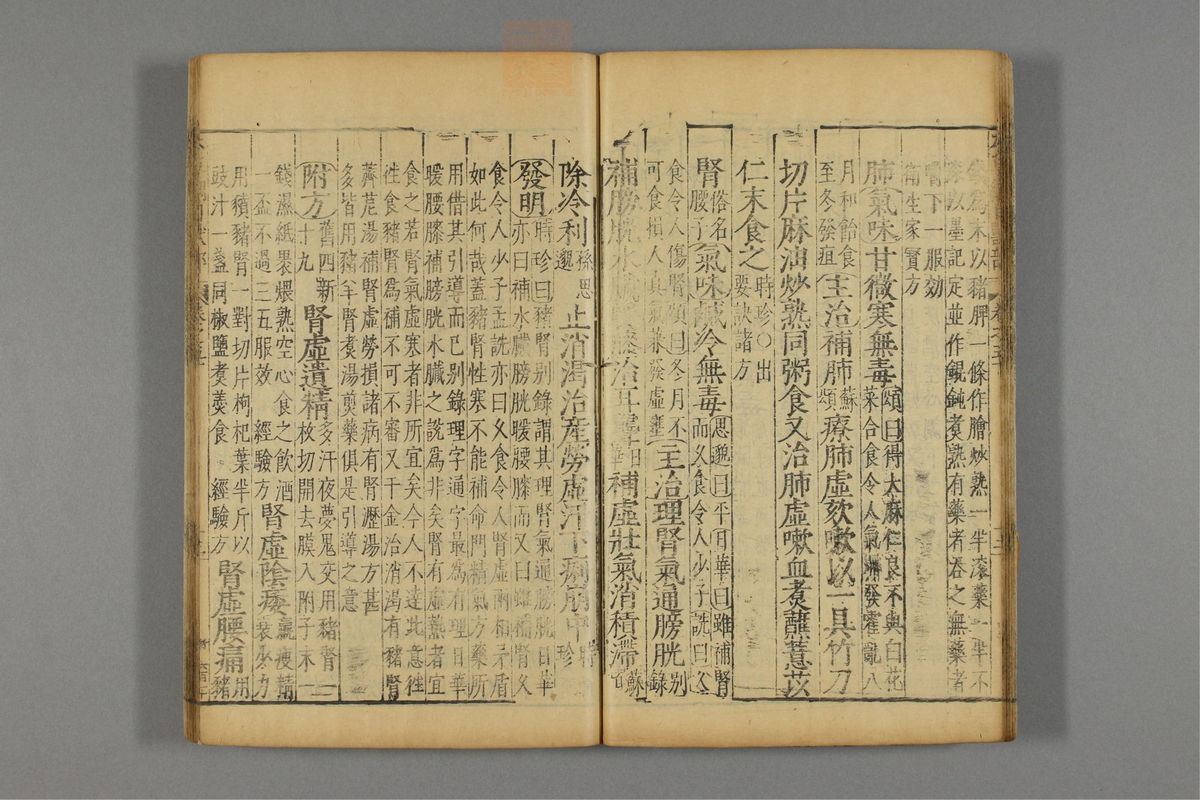 為末以豬脬一條作膾炒熟一半滾藥一半不
滾以墨記定並作餛飩煮熟有藥者吞之無藥者
嚼下一服効
衛生家寳方
肺氣味甘微寒無毒頌曰得大麻仁良不與白花
菜合食令人氣滯發霍亂八
月和飴食
至冬發疽主治補肺頌療肺虛欬嗽以一具竹刀
切片麻油炒熟同粥食又治肺虛嗽血煮蘸薏苡
仁末食之時珍○出
要訣諸方
腎俗名
腰子氣味鹹冷無毒思邈曰平日華曰雖補腎
而久食令人少子詵曰久
食令人傷腎頌曰冬月不
可食損人真氣兼發虛壅主治理腎氣通膀胱別
錄
補膀胱水臟治耳聾日
華補虛壯氣消積滯蘇
除冷利孫思
邈止消渴治產勞虛汗下痢崩中時
珍
發明時珍曰豬腎別錄謂其理腎氣通膀胱日華
亦曰補水臟膀胱暖腰膝而又曰雖補腎久
食令人少子孟詵亦曰久食令人腎虛兩相矛盾
如此何哉蓋豬腎性寒不能補命門精氣方藥所
用借其引導而已別錄理字通字最為有理日華
暖腰膝補膀胱水臟之說為非矣腎有虛熱者宜
食之若腎氣虛寒者非所宜矣今人不達此意往
徃食豬腎為補不可不審又千金治消渴有豬腎
薺苨湯補腎虛勞損諸病有腎瀝湯方甚
多皆用豬羊腎煮湯煎藥俱是引導之意
附方舊四新
十九腎虛遺精多汗夜夢鬼交用豬腎一
枚切開去膜入附子末一
錢濕紙裹煨熟空心食之飲酒
一盃不過三五服效 經驗方腎虛陰痿羸瘦精
衰少力
用豶豬腎一對切片枸杞葉半斤以
豉汁一盞同椒鹽煮羹食 經驗方腎虛腰痛豬
用